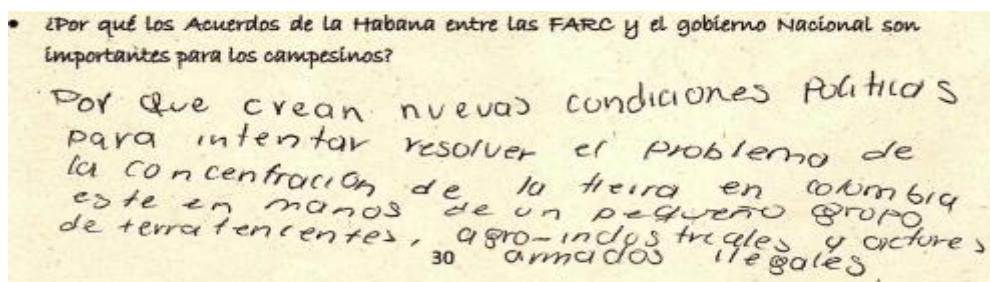 • ¿Por qué los Acuerdos de la Habana entre las FARC y el gobierno Nacional son
importantes para los campesinos?
Por que crean nuevas condiciones Politicas
para intentar resolver el problema de
la concentracion de la tierra en colombia
este en manos de un pequeño grupo
de terratenientes, agro-industriales y actores
30 armados ilegales.